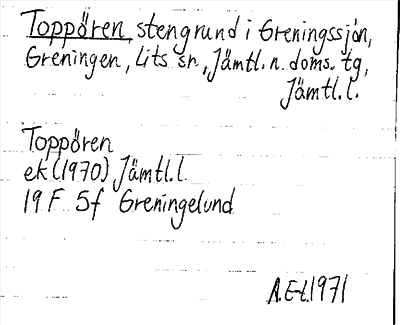 Toppören, stengrund i Greningssjön,
Greningen, Lits sn, Jämtl. n. doms. tg,
Jämtl. l.
Toppören
ek (1970) Jämtl. l.
19 F 5f Greningelund
A.E-t.1971